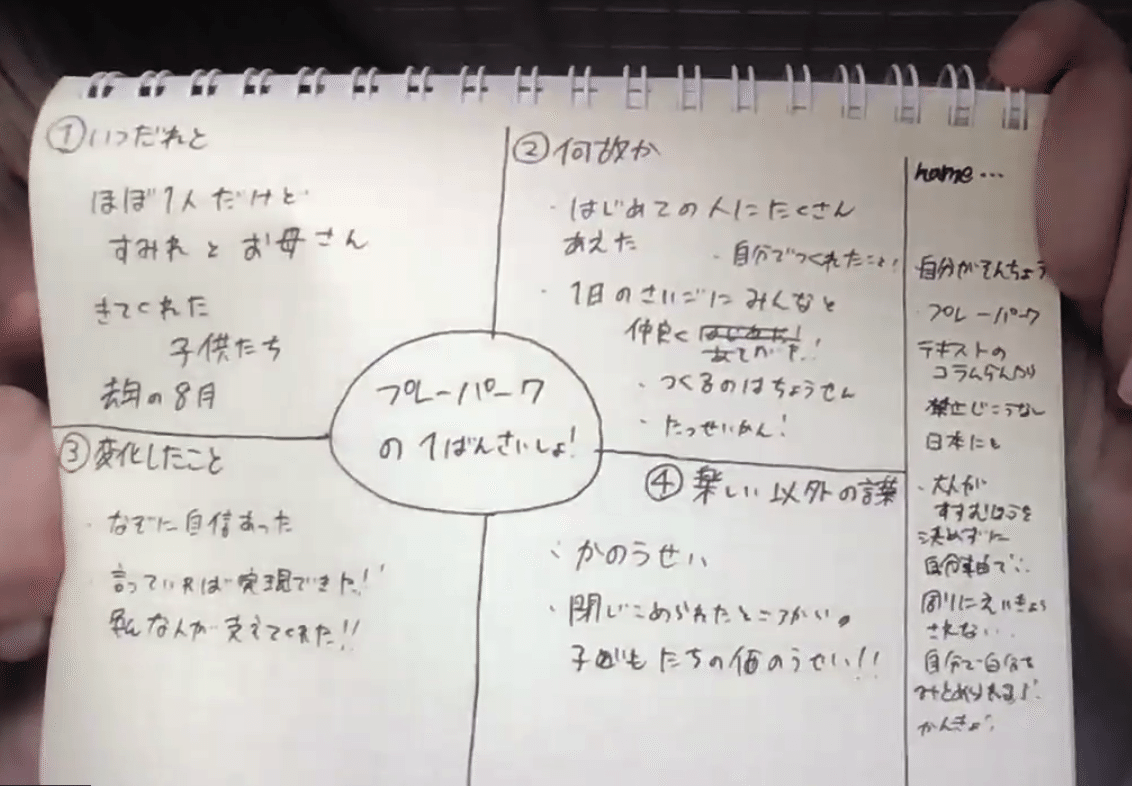 ①いつだれと
ほぼ1人だけど
すみれとお母さん
きてくれた
子供たち
去年の8月
②何故か
・はじめての人にたくさん
あえた
・自分でつくれたこと!
・1日のさいごにみんなと
仲良く
・つくるのはちょうせん
・たっせいかん!
プレーパーク
の1ばんさいしょ!
③変化したこと
・なぞに自信あった
言っていれば実現できた!!
色んな人が支えてくれた!!
④楽しい以外の言葉
・かのうせい
・閉じこめられたところからの
子どもたちの
name…
・自分がそんちょう
・プレーパーク
テキストの
コラムらんり
禁止じこうなし
日本にも
・大人が
すすむほうを
決めずに
自分自由で
周りにえいきょう
されない
自分で自分を
みとめられる
かんきょう